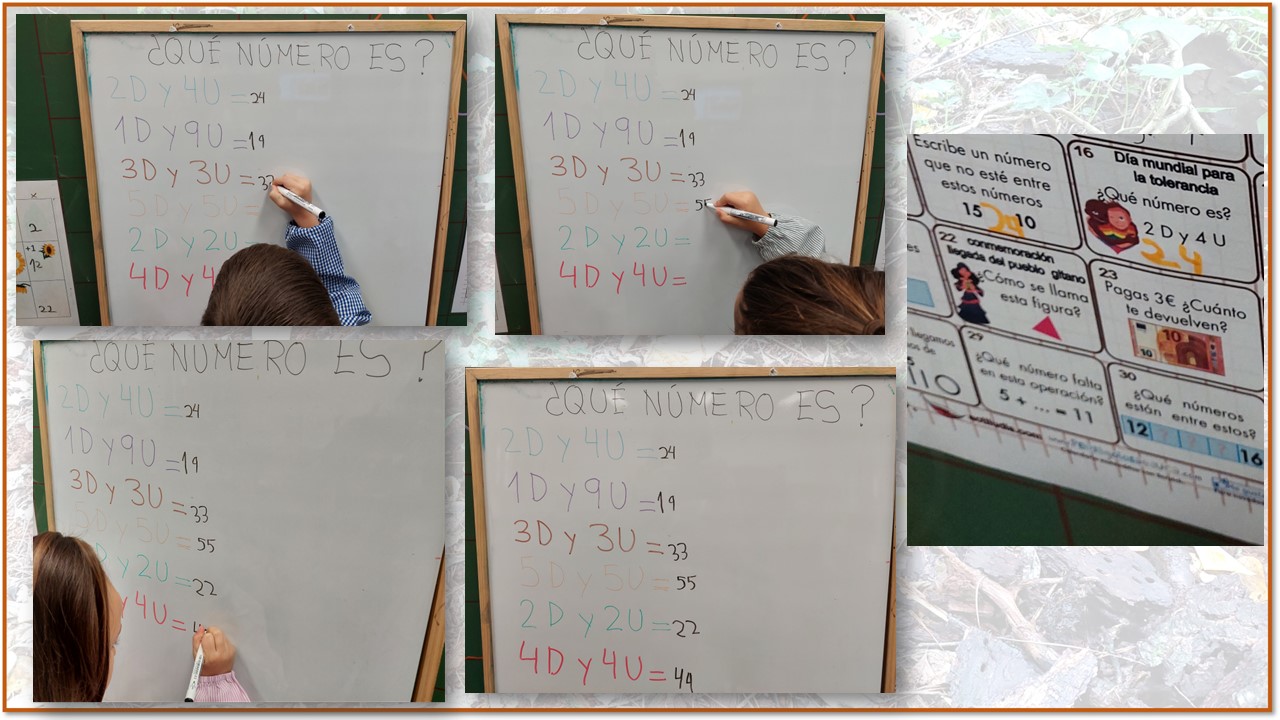 ¿QUÉ NÚMERO ES?
2D y 4U = 24
1D y 9U = 19
3D y 3U = 33
5D y 5U =
2D y 2U =
4D y 4
¿QUÉ NÚMERO ES?
2D y 4U = 24
1D y 9U = 19
3D y 3U = 33
5D y 5U = 55
2D y 2U =
4D y 4U =
2
+1
12
22
¿QUÉ NÚMERO ES?
2D y 4U = 24
1D y 9U = 19
3D y 3U = 33
5D y 5U = 55
D y 2U = 22
y 4U = 4
¿QUÉ NÚMERO ES?
2D y 4U = 24
1D y 9U = 19
3D y 3U = 33
5D y 5U = 55
2D y 2U = 22
4D y 4U = 44
Escribe un número
que no esté entre
estos números
15 20 10
16 Día mundial para
la tolerancia
¿Qué número es?
2 D y 4 U
24
22 conmemoración
llegada del pueblo gitano
¿Cómo se llama
esta figura?
23
Pagas 3€ ¿Cuánto
te devuelven?
10
10
29
¿Qué número falta
en esta operación?
5 + ... = 11
30
¿Qué números
están entre estos?
12 ? ? ? 16
llegamos
os de
110